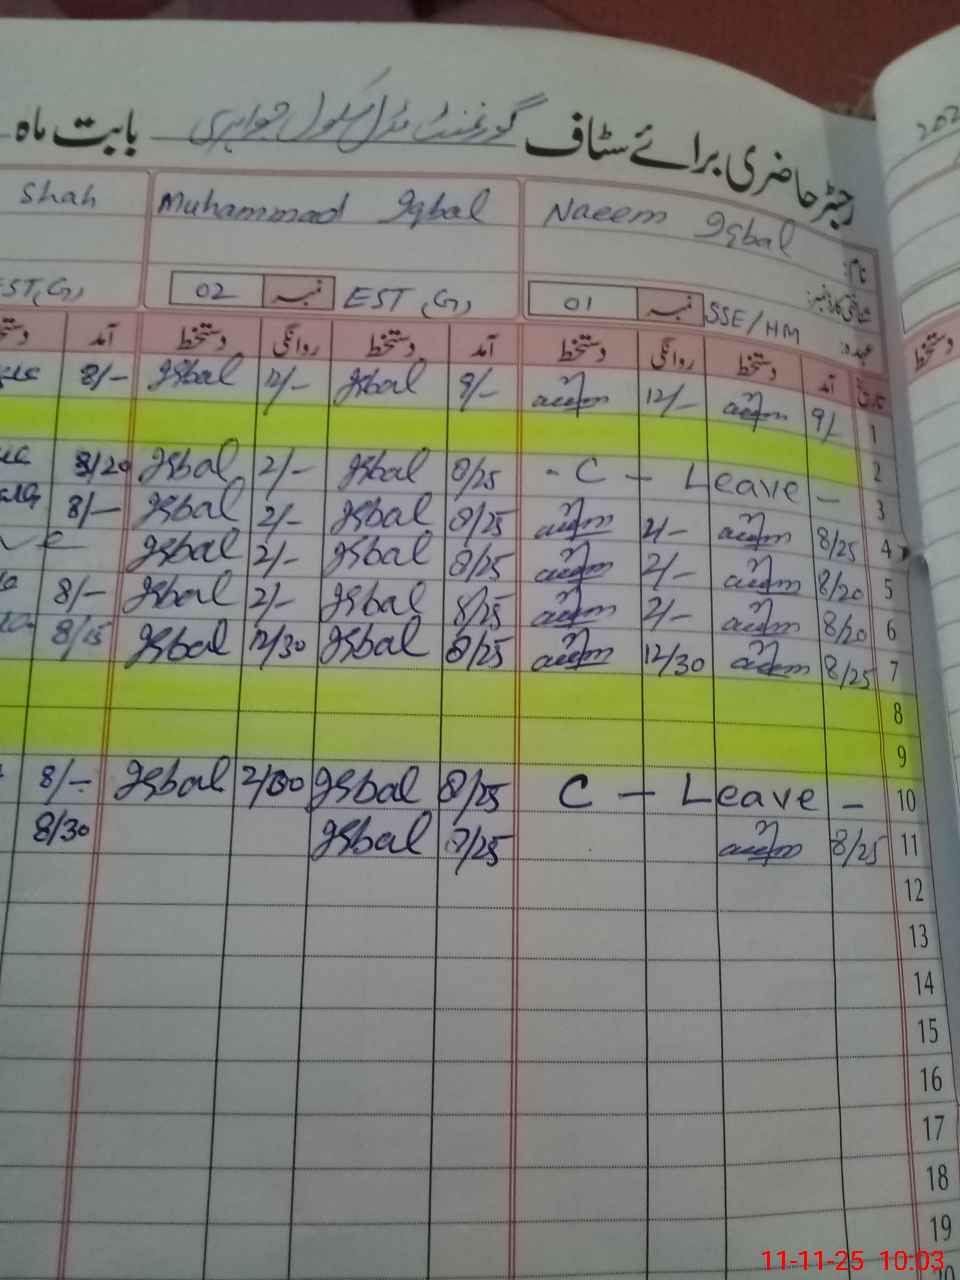 رجسٹر حاضری برائے سٹاف گورنمنٹ مڈل سکول بابت ماہ
202
نام: Naeem Iqbal Muhammad Iqbal Shah
عہدہ: SSE/HM نمبر 01 EST(G) نمبر 02 EST(G)
تاریخ آمد دستخط روانگی دستخط آمد دستخط روانگی دستخط آمد دستخط
1 9/- 12/- 9/- Iqbal 12/- Iqbal 8/-
2
3 - C - Leave - 8/25 Iqbal 2/- Iqbal 8/20
4 8/25 2/- 8/25 Iqbal 2/- Iqbal 8/-
5 8/20 2/- 8/25 Iqbal 2/- Iqbal
6 8/20 2/- 8/25 Iqbal 2/- Iqbal 8/-
7 8/25 12/30 8/25 Iqbal 12/30 Iqbal 8/15
8
9
10 C - Leave - 8/25 Iqbal 2/00 Iqbal 8/-
11 8/25 8/25 Iqbal 8/30
12
13
14
15
16
17
18
19
20
11-11-25 10:03